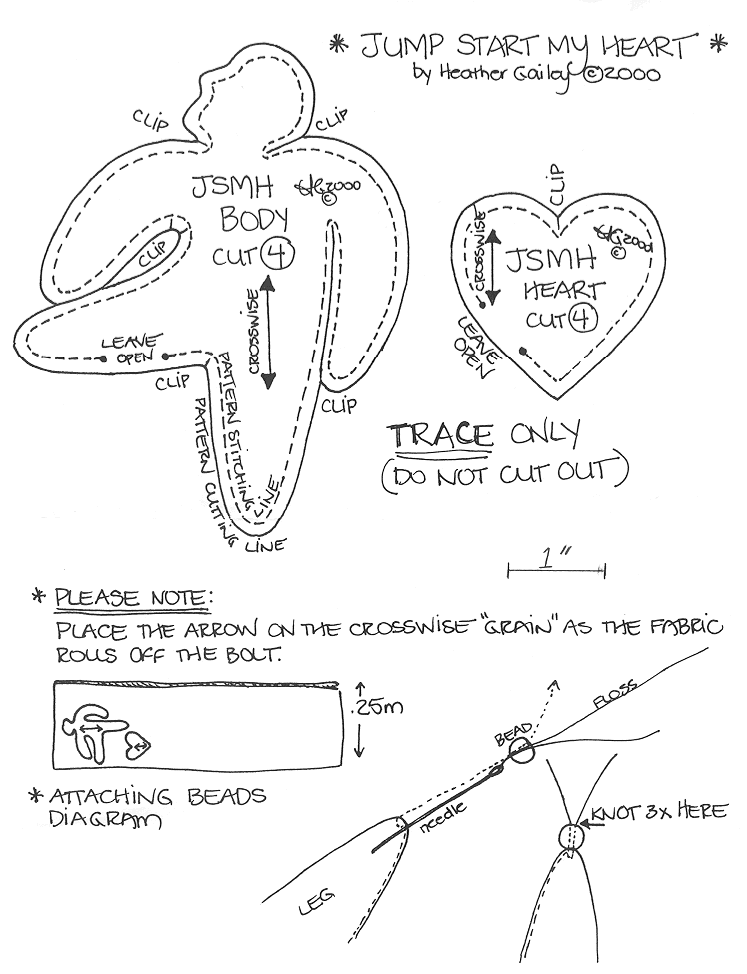 * JUMP START MY HEART *
by Heather Gailey ©2000
CLIP
CLIP
JSMH
HG2000
©
BODY
CUT 4
CLIP
CROSSWISE
LEAVE
OPEN
CLIP
CLIP
PATTERN STITCHING LINE
PATTERN CUTTING LINE
CLIP
CROSSWISE
HG2000
©
JSMH
HEART
CUT 4
LEAVE
OPEN
TRACE ONLY
(DO NOT CUT OUT)
1"
* PLEASE NOTE:
PLACE THE ARROW ON THE CROSSWISE "GRAIN" AS THE FABRIC
ROLLS OFF THE BOLT.
.25m
* ATTACHING BEADS
DIAGRAM
FLOSS
BEAD
needle
LEG
KNOT 3X HERE